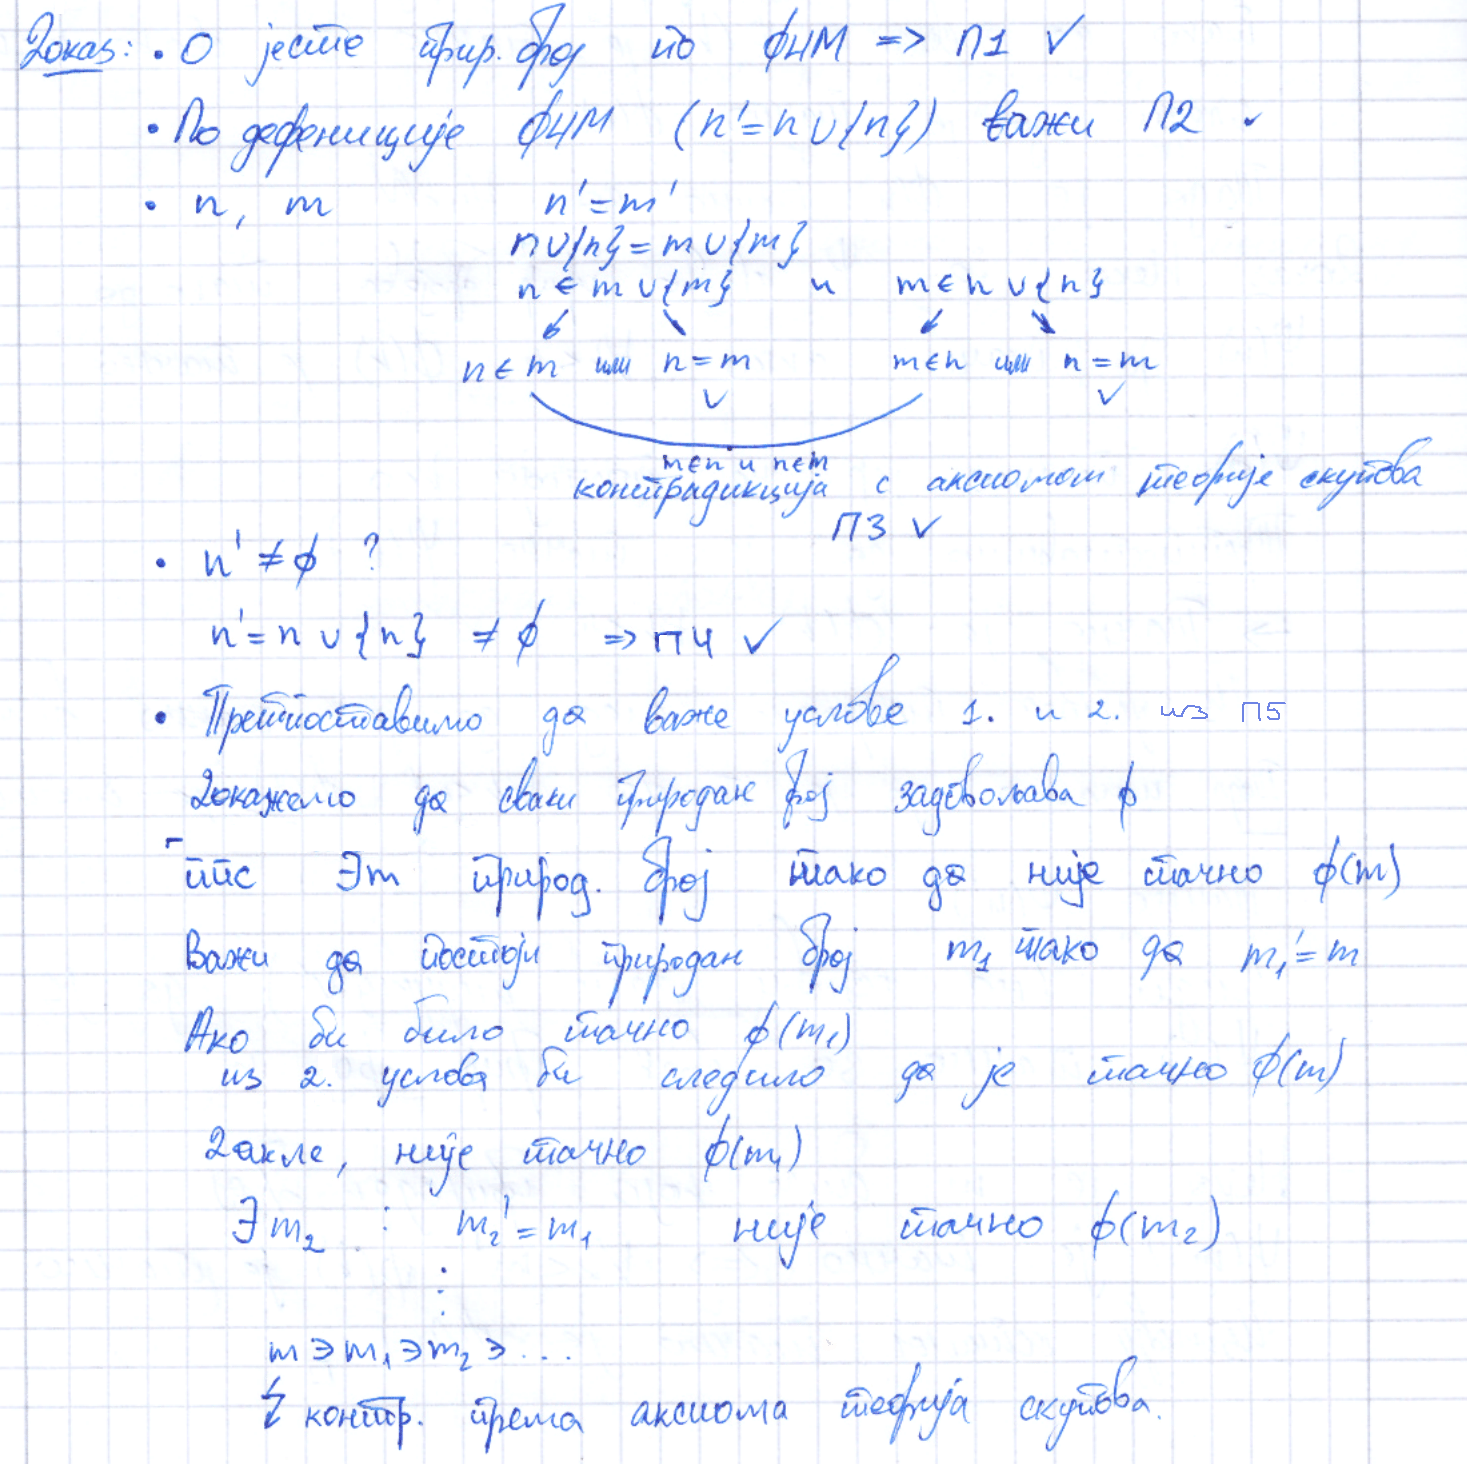 Доказ: • 0 јесте прир. број по ФНМ => П1 ✓
• По дефениције ФНМ (n' = n ∪ {n}) важи П2 ✓
• n, m n' = m'
n ∪ {n} = m ∪ {m}
n ∈ m ∪ {m} и m ∈ n ∪ {n}
↙ ↘ ↙ ↘
n ∈ m или n = m m ∈ n или n = m
✓ ✓
m ∈ n и n ∈ m
контрадикција с аксиомом теорије скупова
П3 ✓
• n' ≠ ϕ ?
n' = n ∪ {n} ≠ ϕ => П4 ✓
• Претпоставимо да важе услове 1. и 2. из П5
Докажемо да сваки природан број задовољава ϕ
ппс ∃m природ. број тако да није тачно ϕ(m)
Важи да постоји природан број m₁ тако да m₁' = m
Ако би било тачно ϕ(m₁)
из 2. услова би следило да је тачно ϕ(m)
Дакле, није тачно ϕ(m₁)
∃m₂ : m₂' = m₁ није тачно ϕ(m₂)
⋮
m ∋ m₁ ∋ m₂ ∋ ...
↯ контр. према аксиома теорија скупова.